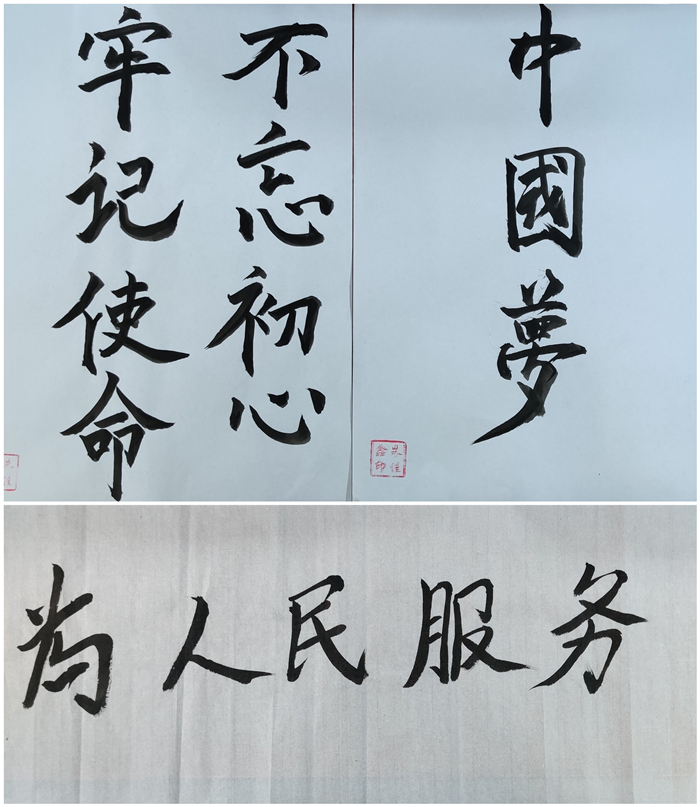 不忘初心
牢记使命
中國夢
为人民服务